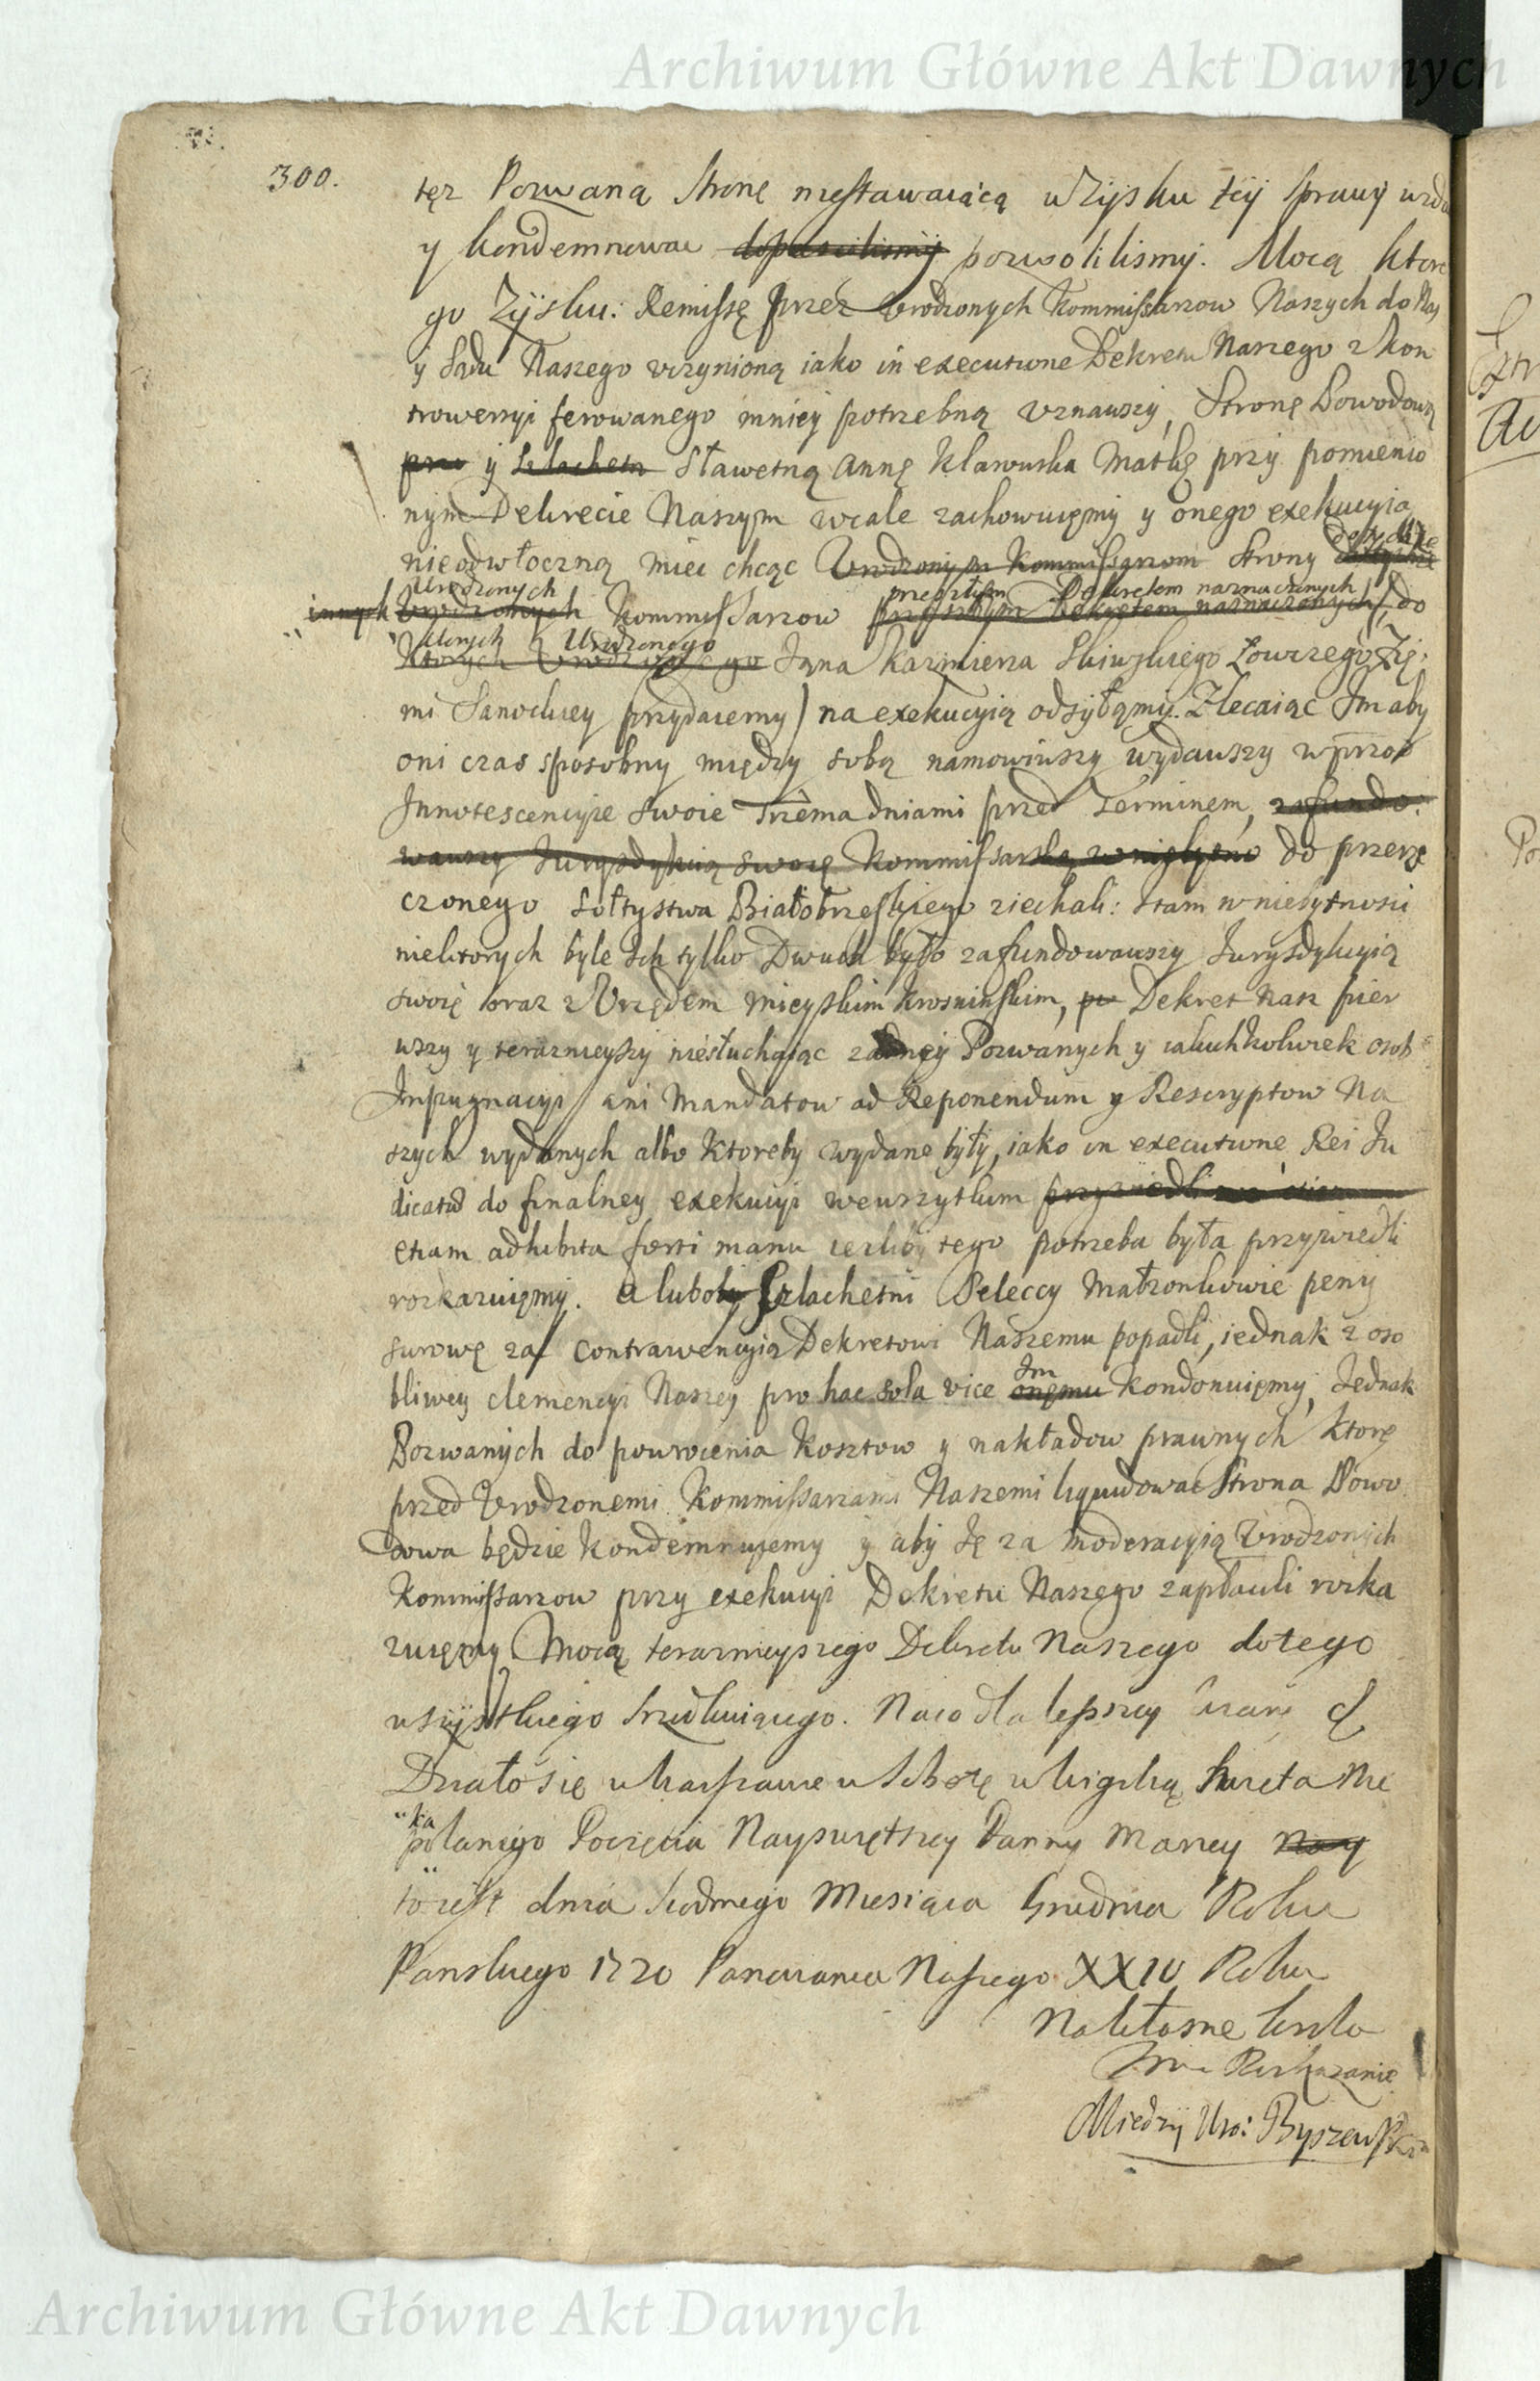 Archiwum Główne Akt Dawnych
300.
tęz Pozwaną Stronę niestawaiącą w Zysku tey Sprawy wzdać
y kondemnować dopuscilismy pozwolilismy. Mocą ktore
go Zysku: Remissę przez Vrodzonych Kommissarzow Naszych do Nas
y Sądu Naszego vczynioną iako in executione Dekretu Naszego z kon
trowersyi ferowanego mniey potrzebną vznawszy, Stronę Powodową
pra y Szlachetn Sławetną Annę Klawuska Matkę przy pomienio
nym Dekrecie Naszym wcale zachowuięmy y onego exekucyią
nieodwłoczną miec chcąc Vrodzonym Kommissarzom Strony do tychże
Urodzonych przeszłym Dekretem naznaczonych
innych Vrodzonych Kommissarzow przeszłym Dekretem naznaczonych, do
których Urodzonego
Ktorych Vrodzonego Jana Kazimierza Łowczego Zie
mi Sanockiey przydaiemy) na exekucyią odsyłamy. Zlecaiąc Im aby
oni czas sposobny między sobą namowiwszy wydawszy wprzod
Innotescencyie swoie Trzema dniami przed Terminem, zafundo
wawszy Iurysdykcią swoię Kommissarską do przerze
czonego Sołtystwa Białobrzeskiego ziechali: tam w niebytnosci
niektorych byle Ich tylko Dwuch było zafundowawszy Iurysdykcyią
swoię oraz z Vrzędem mieyskim Krosninskim, Dekret Nasz pier
wszy y teraznieyszy niesłuchaiąc zadney Pozwanych y iakichkolwiek osob
Impugnacyi ani Mandatow ad Reponendum y Rescryptow Na
szych wydanych albo ktoreby wydane były, iako in executione Rei Iu
dicatæ do finalney exekucyi wewszytkim przywiedli
etiam adhibita forti manu iezliby tego potrzeba była przywiedli
rozkazuięmy. A luboby Szlachetni Peleccy Małzonkowie peny
surowę za contrawencyią Dekretowi Naszemu popadli, iednak z oso
bliwey clemencyi Naszey pro hac sola vice Im onemu kondonuięmy, Iednak
Pozwanych do powrocenia Kosztow y nakładow prawnych ktorę
przed Vrodzonemi Kommissarzami Naszemi liquidować Strona Powo
dowa będzie kondemnujemy y aby Ię za moderacyią Vrodzonych
Kommissarzow przy exekucyi Dekretu Naszego zapłacili rozka
zuięmy Mocą teraznieyszego Dekretu Naszego do tego
wszystkiego srzodkuiącego. Na co dla lepszey wiary &
Działo się w Warszawie w Sobotę w Wigilią Swięta Nie
pokalanego Poczęcia Nayswiętszey Panny Maryey Nay
to iest dnia siodmego Miesiąca Grudnia Roku
Panskiego 1720 Panowania Naszego XXIV Roku
Na własne Krola
Imci Rozkazanie
Miedzy Uro: Byszewski
Archiwum Główne Akt Dawnych